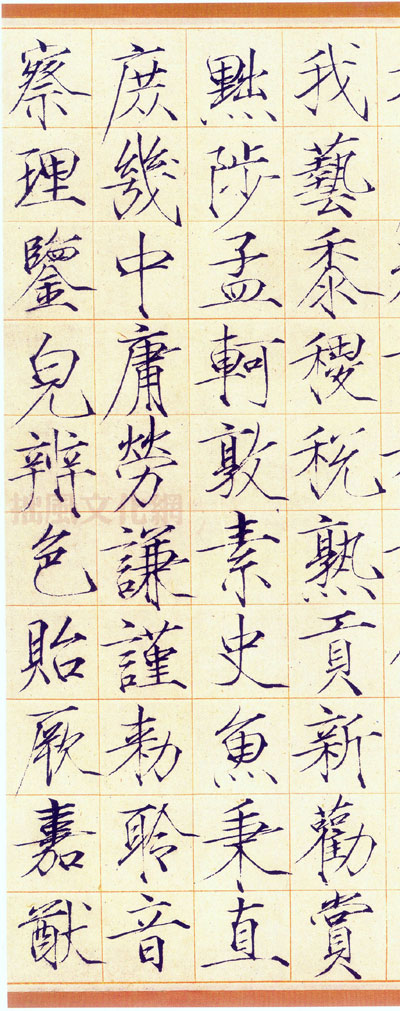 我藝黍稷稅熟貢新勸賞
黜陟孟軻敦素史魚秉直
庶幾中庸勞謙謹勅聆音
察理鑒皃辨色貽厥嘉猷
拙風文化網